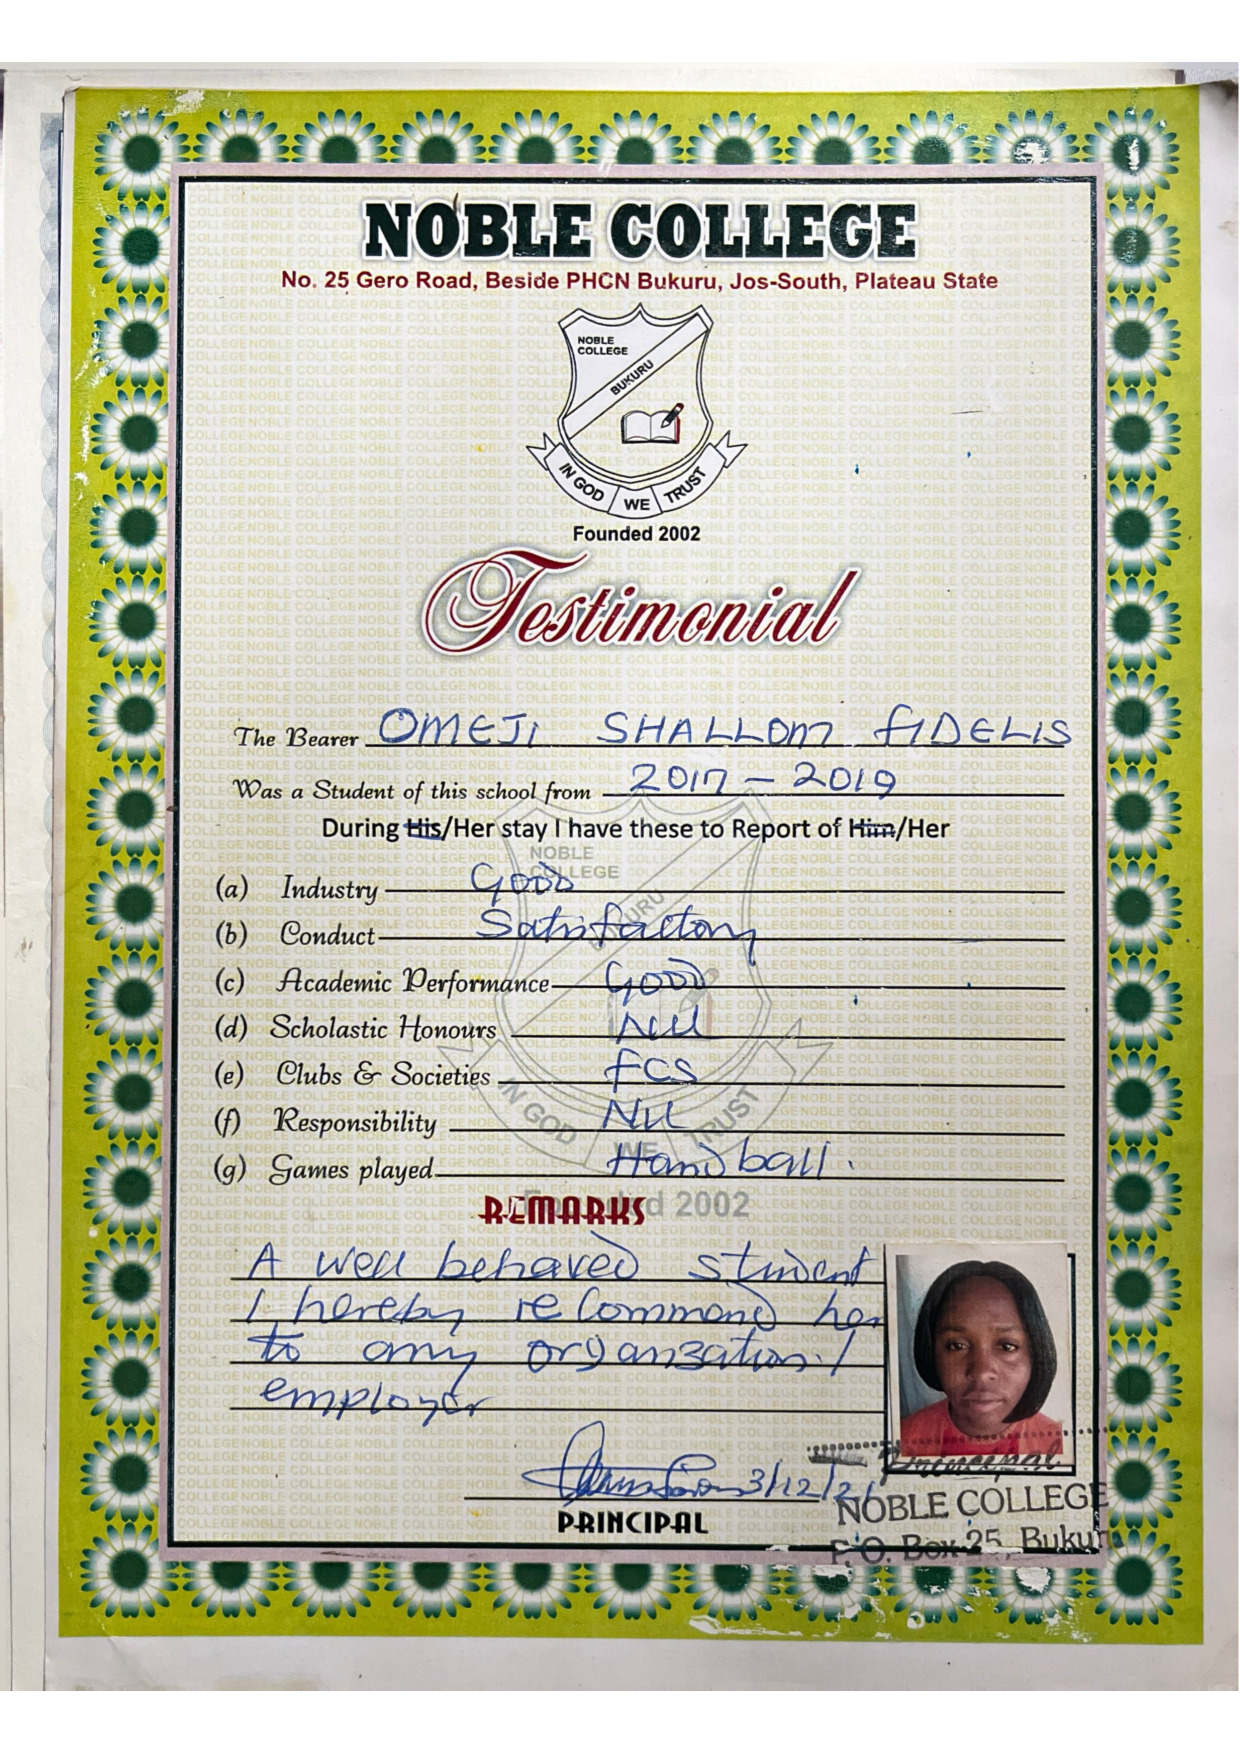 NOBLE COLLEGE
No. 25 Gero Road, Beside PHCN Bukuru, Jos-South, Plateau State
NOBLE
COLLEGE
BUKURU
IN GOD WE TRUST
Founded 2002
Testimonial
The Bearer OMEJI SHALLOM FIDELIS
Was a Student of this school from 2017 – 2019
During His/Her stay I have these to Report of Him/Her
(a) Industry Good
(b) Conduct Satisfactory
(c) Academic Performance Good
(d) Scholastic Honours Nil
(e) Clubs & Societies FCS
(f) Responsibility Nil
(g) Games played Handball.
REMARKS
A well behaved student
I hereby recommend her
to any organization /
employer
3/12/21
PRINCIPAL
Principal
NOBLE COLLEGE
P. O. Box 25, Bukuru